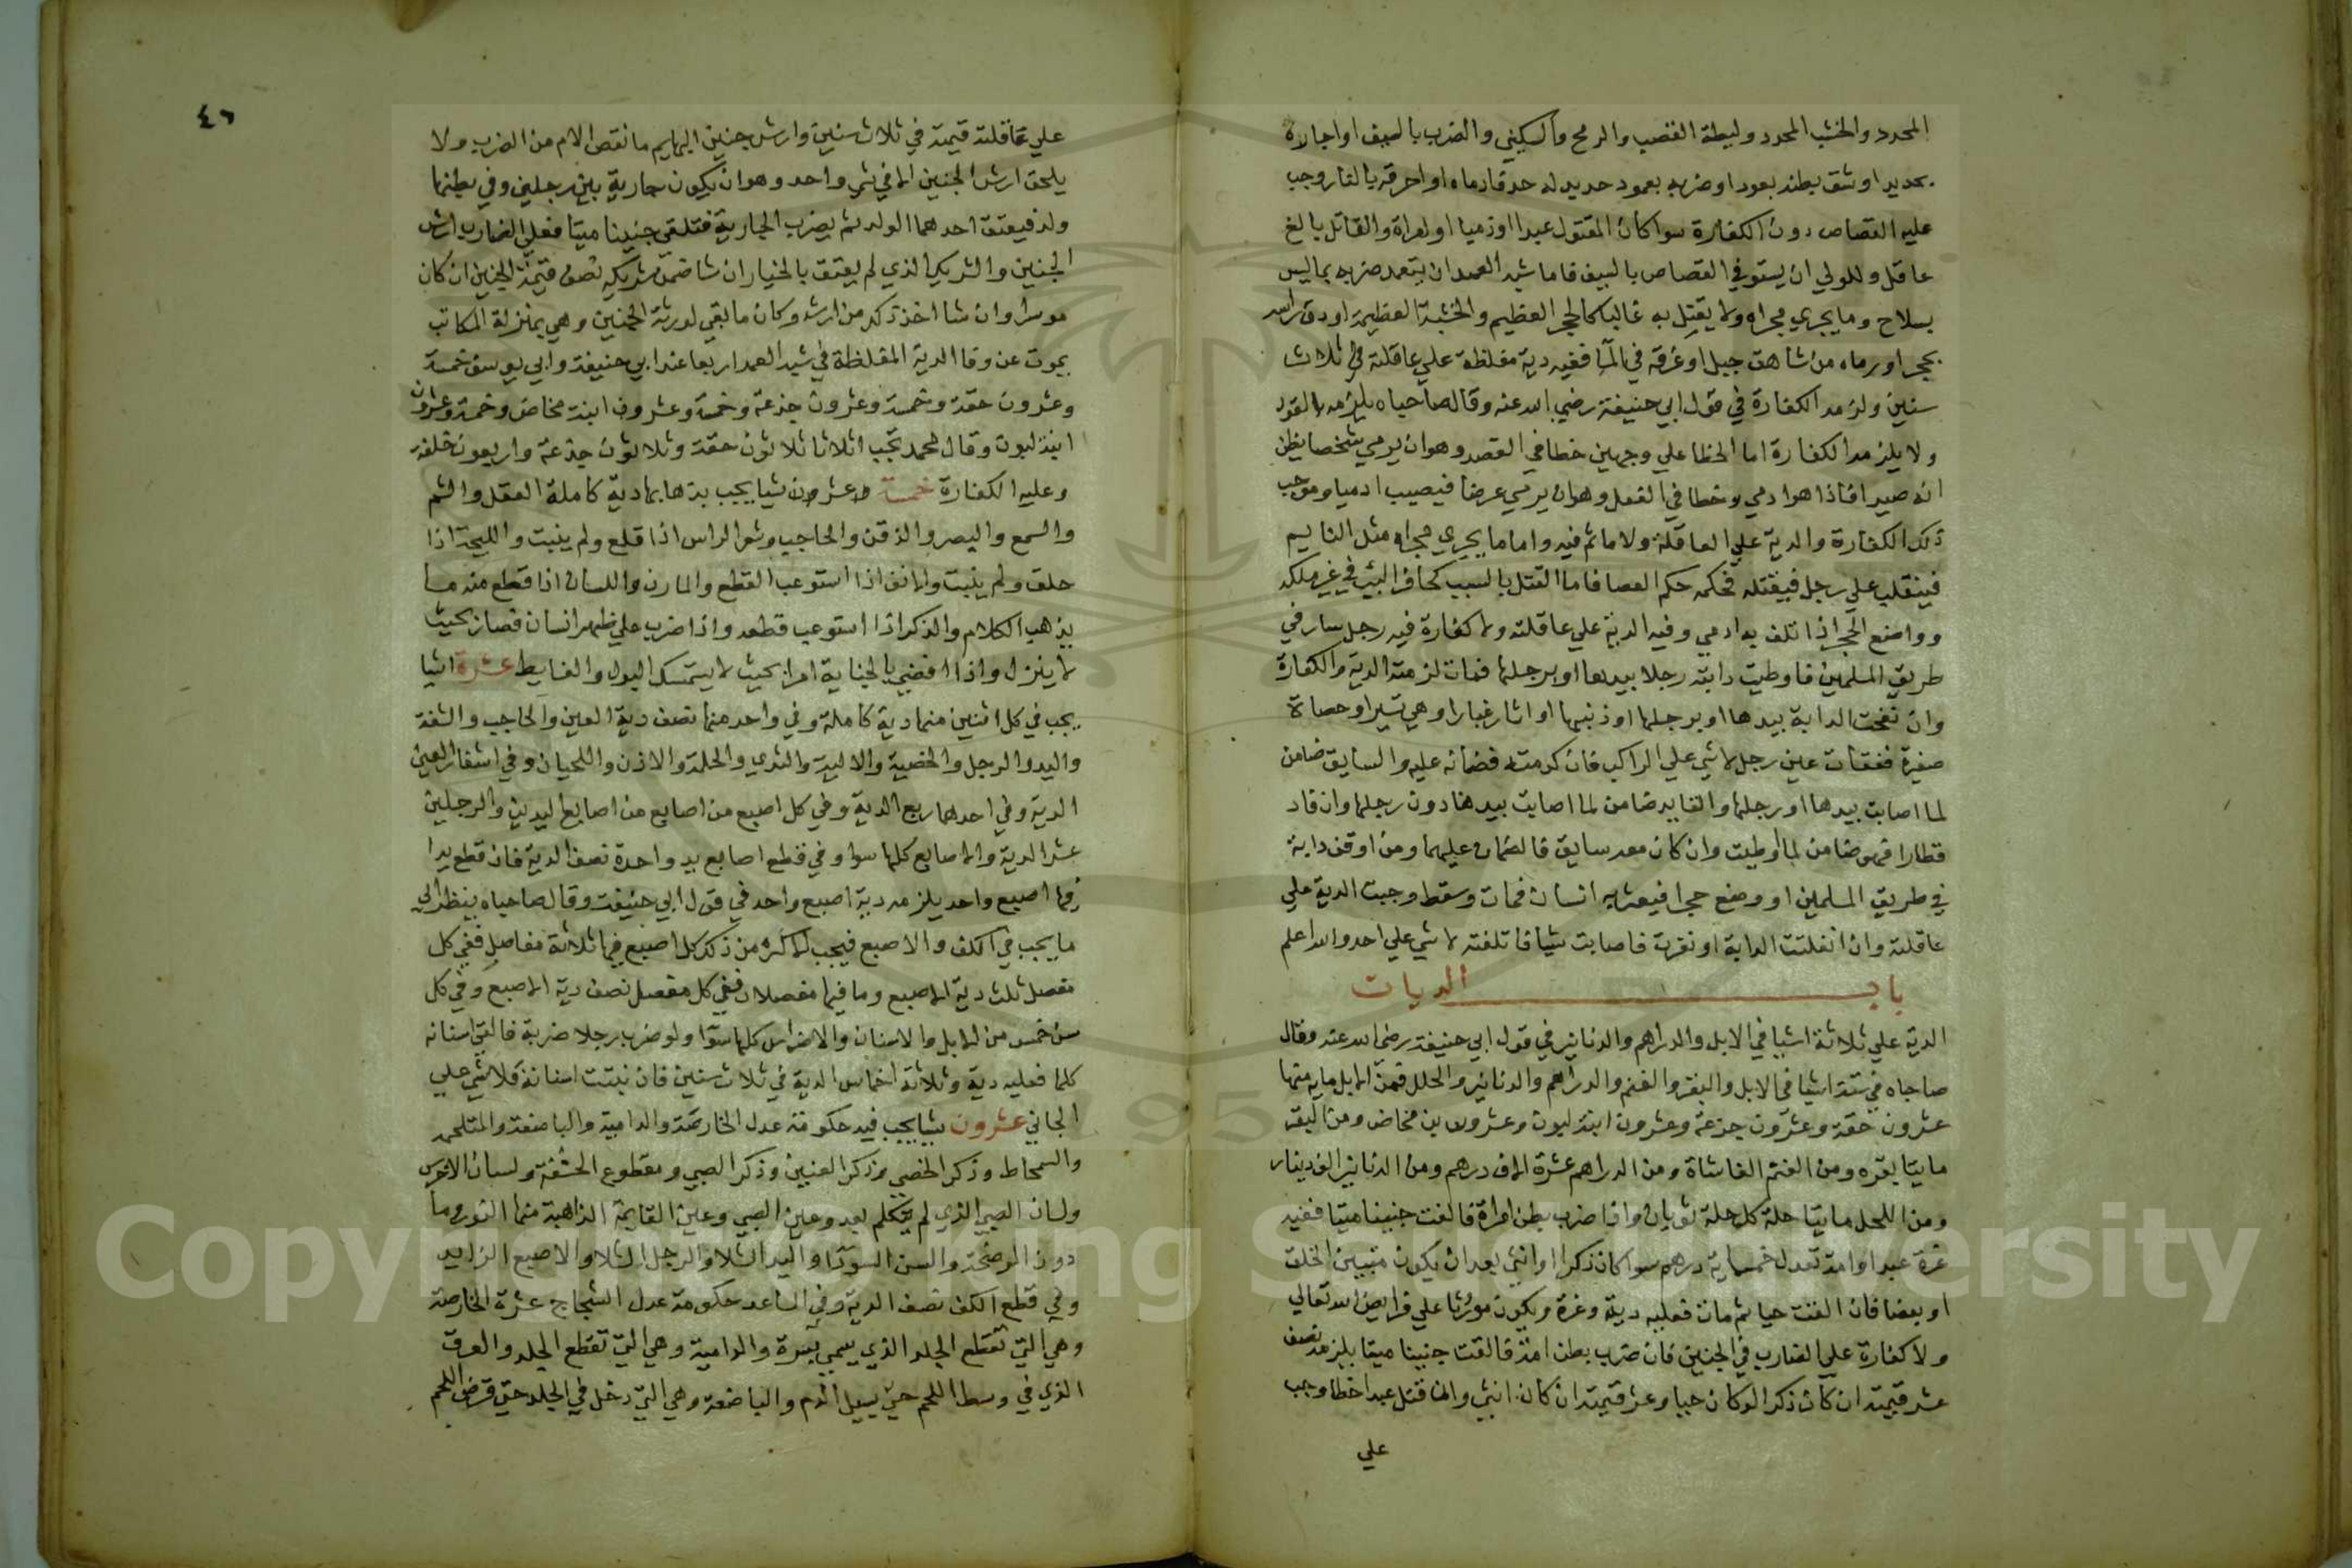 المحدد والخشب المحدد وليطة القصب والرمح والسكين والضرب بالسيف او اجازه
بحديد او شق بطنه بعود او ضربه بعمود حديد له حد قد رماه او احرقه بالنار وجب
عليه القصاص دون الكفارة سوا كان المقتول عبدا او ذميا او امراة والقاتل بالغ
عاقل وللولي ان يستوفي القصاص بالسيف فاما شبه العمد ان يتعمد ضربه بما ليس
بسلاح وما يجري مجراه ولا يقتل به غالبا كالحجر العظيم والخشبة العظيمة او دق راسه
بحجر او رماه من شاهق جبل او غرقه في المآ ففيه دية مغلظة علي عاقلته في ثلاث
سنين ولزمه الكفارة في قول ابي حنيفة رضي الله عنه وقال صاحباه يلزمه القود
ولا يلزمه الكفارة اما الخطا علي وجهين خطا في القصد وهو ان يرمي شخصا يظن
انه صيد افاذا هو ادمي وخطا في الفعل وهو ان يرمي عرضا فيصيب ادميا وموجب
ذلك الكفارة والدية علي العاقلة ولا ماثم فيه واما ما يجري مجراه مثل النايم
فينقلب علي رجل فيقتله فحكمه حكم العصا فاما القتل بالسبب كحافر البئر في غير ملكه
وواضع الحجر اذا تلف به ادمي وفيه الدية علي عاقلته ولا كفارة فيه رجل سار في
طريق المسلمين فاوطيت دابته رجلا بيدها او برجلها فمات لزمته الدية والكفارة
وان نفحت الدابة بيدها او برجلها او ذنبها او اثار غبارا وهي تسير او حصاة
صغيرة ففقات عين رجل لا شي علي الراكب فان كدمته فضمانه عليه والسايق ضامن
لما اصابت بيدها او رجلها والقايد ضامن لما اصابت بيدها دون رجلها وان قاد
قطارا فهو ضامن لما اوطيت وان كان معه سايق فالضمان عليهما ومن اوقف دابة
في طريق المسلمين او وضع حجرا فيعثر به انسان فمات وسقط وجبت الدية علي
عاقلته وان انفلتت الدابة او نفرته فاصابت شيا فاتلفته لا شي علي احد والله اعلم
باب الديات
الدية علي ثلاثة اشيا في الابل والدراهم والدنانير في قول ابي حنيفة رضي الله عنه وقال
صاحباه في ستة اشيا في الابل والبقر والغنم والدراهم والدنانير والحلل فمن الابل مايه منها
عشرون حقة وعشرون جذعة وعشرون ابنة لبون وعشرون بن مخاض ومن البقر
مايتا بقره ومن الغنم الفا شاة ومن الدراهم عشرة الاف درهم ومن الدنانير الف دينار
ومن اللحل مايتا حلة كل حلة ثوبان واذا ضرب بطن امراة فالقت جنينا ميتا ففيه
غرة عبد او امة تعدل خمسماية درهم سوا كان ذكرا او انثي بعد ان يكون متبين الخلق
او بعضا فان القت حيا ثم مات فعليه دية وغرة ويكون موروثا علي فرايض الله تعالي
ولا كفارة علي الضارب في الجنين فان ضرب بطن امة فالقت جنينا ميتا يلزمه نصف
عشر قيمته ان كان ذكرا لو كان حيا وعشر قيمته ان كان انثي واذا قتل عبدا خطا وجب
علي
٤٦
علي عاقلته قيمته في ثلاث سنين وارش جنين البهايم ما نقص الام من الضرب ولا
يلحق ارش الجنين الا في شي واحد وهو ان يكون جارية بين رجلين وفي بطنها
ولد فيعتق احدهما الولد ثم يضرب الجارية فتلقي جنينا ميتا فعلي الضارب ارش
الجنين والشريك الذي لم يعتق بالخيار ان شا ضمن شريكه نصف قيمة الجنين ان كان
موسرا وان شا اخذ ذلك من ارشه وكان ما بقي لورثة الجنين وهي بمنزلة المكاتب
يموت عن وفا الدية المغلظة في شبه العمد اربعا عند ابي حنيفة وابي يوسف خمسة
وعشرون حقة وخمسة وعشرون جذعة وخمسة وعشرون ابنة مخاض وخمسة وعشرون
ابنة لبون وقال محمد تجب اثلاثا ثلاثون حقة وثلاثون جذعة واربعون خلفة
وعليه الكفارة خمسة وعشرون شيا يجب بذهابها دية كاملة العقل والشم
والسمع والبصر والذقن والحاجب وشعر الراس اذا قلع ولم ينبت واللحية اذا
حلق ولم ينبت والانف اذا استوعب القطع والمارن واللسان اذا قطع منه ما
يذهب الكلام والذكر اذا استوعب قطعه واذا ضرب علي ظهر انسان فصار بحيث
لا ينزل واذا افضي بالجناية امراة بحيث لا يستمسك البول والغايط عشرة اشيا
يجب في كل اثنين منها دية كاملة وفي واحد منها نصف دية العين والحاجب والشفة
واليد والرجل والخصية والالية والثدي والحلمة والاذن واللحيان وفي اشفار العين
الدية وفي احدهما ربع الدية وفي كل اصبع من اصابع من اصابع اليدين والرجلين
عشر الدية والاصابع كلها سوا وفي قطع اصابع يد واحدة نصف الدية فان قطع يدا
فيها اصبع واحد يلزمه دية اصبع واحد في قول ابي حنيفة وقال صاحباه ينظر الي
ما يجب في الكف والاصبع فيجب الاكثر من ذلك كل اصبع فيها ثلاثة مفاصل ففي كل
مفصل ثلث دية الاصبع وما فيها مفصلان ففي كل مفصل نصف دية الاصبع وفي كل
سن خمس من الابل والاسنان والاضراس كلها سوآ ولو ضرب رجلا ضربة فالقي اسنانه
كلها فعليه دية وثلاثة اخماس الدية في ثلاث سنين فان نبتت اسنانة فلا شي علي
الجاني عشرون شيا يجب فيه حكومة عدل الخارصة والدامية والباضعة والمتلحمه
والسمحاط وذكر الخصي وذكر العنين وذكر الصبي ومقطوع الحشفة ولسان الاخرس
ولسان الصبي الذي لم يتكلم بعد وعين الصبي وعين القايمة الذاهبة منها النور وما
دون الموضحة والسن السودآ واليد الشلا والرجل الشلا والاصبع الزايد
وفي قطع الكف نصف الدية وفي الساعد حكومة عدل الشجاج عشرة الخارصة
وهي التي تقطع الجلد الذي يسمي بشرة والدامية وهي التي تقطع الجلد والعرق
الذي في وسط اللحم حتي يسيل الدم والباضعة وهي التي دخل في الجلد حتي قرض اللحم
Copyright © King Saud University
1957